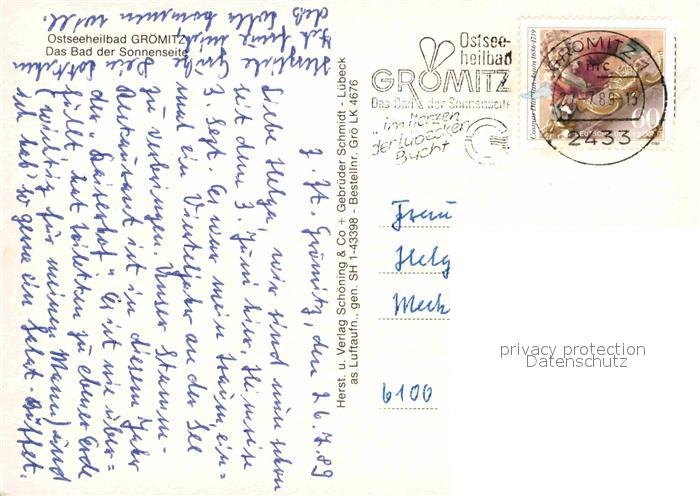 Ostseeheilbad GRÖMITZ
Das Bad der Sonnenseite
z. Zt. Grömitz, den 26.7.89
Liebe Helga, wir sind nun schon
seit dem 3. Juni hier, Heimreise
3. Sept. Es war mein Traum, ein-
mal ein Vierteljahr an der See
zu verbringen. Unser Stamm-
restaurant ist in diesem Jahr
der „Kaiserhof“. Es ist nie über=
füllt, hat Toiletten zu ebener Erde
(wichtig für meinen Mann) und
ich hab' so gerne ein Salat-Büffet.
Herzliche Grüße
Herst. u. Verlag Schöning & Co + Gebrüder Schmidt - Lübeck
as Luftaufn., gen. SH 1-43398 - Bestellnr. Grö LK 4676
Ostsee-
heilbad
GRÖMITZ
Das Bad der Sonnenseite
im Herzen
der Lübecker
Bucht
GRÖMITZ 1
mc
89-13
2433
60
DEUTSCHE
Frau
Helg
Meck
6100
privacy protection
Datenschutz